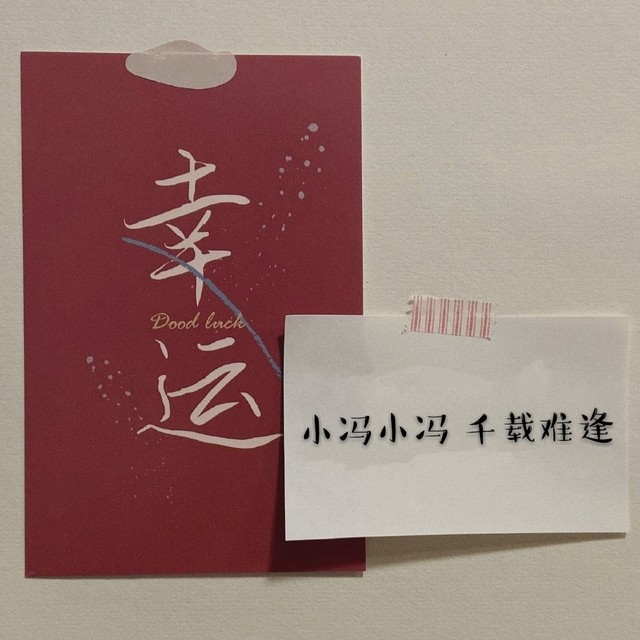 幸
Dood luck
运
小冯小冯 千载难逢